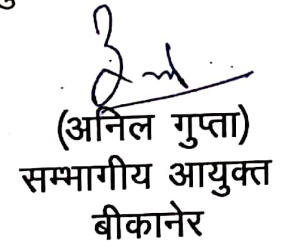 (अनिल गुप्ता)
सम्भागीय आयुक्त
बीकानेर